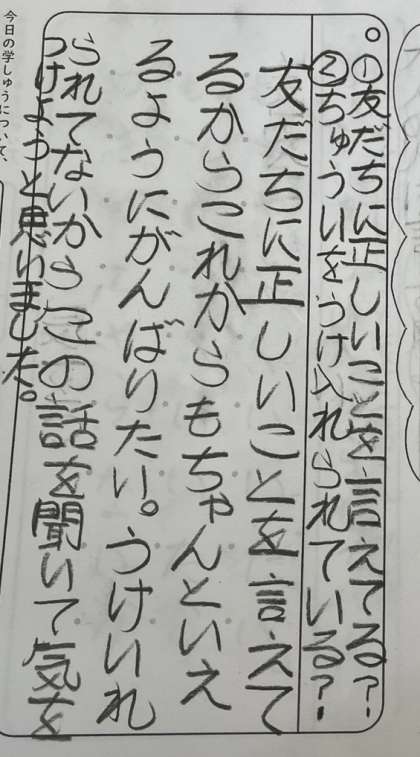 。①友だちに正しいことを言えてる?
②ちゅういをうけ入れられている?
友だちに正しいことを言えて
るからこれからもちゃんといえ
るようにがんばりたい。うけいれ
られてないからこの話を聞いて気を
つけようと思いました。
今日の学しゅうについて、